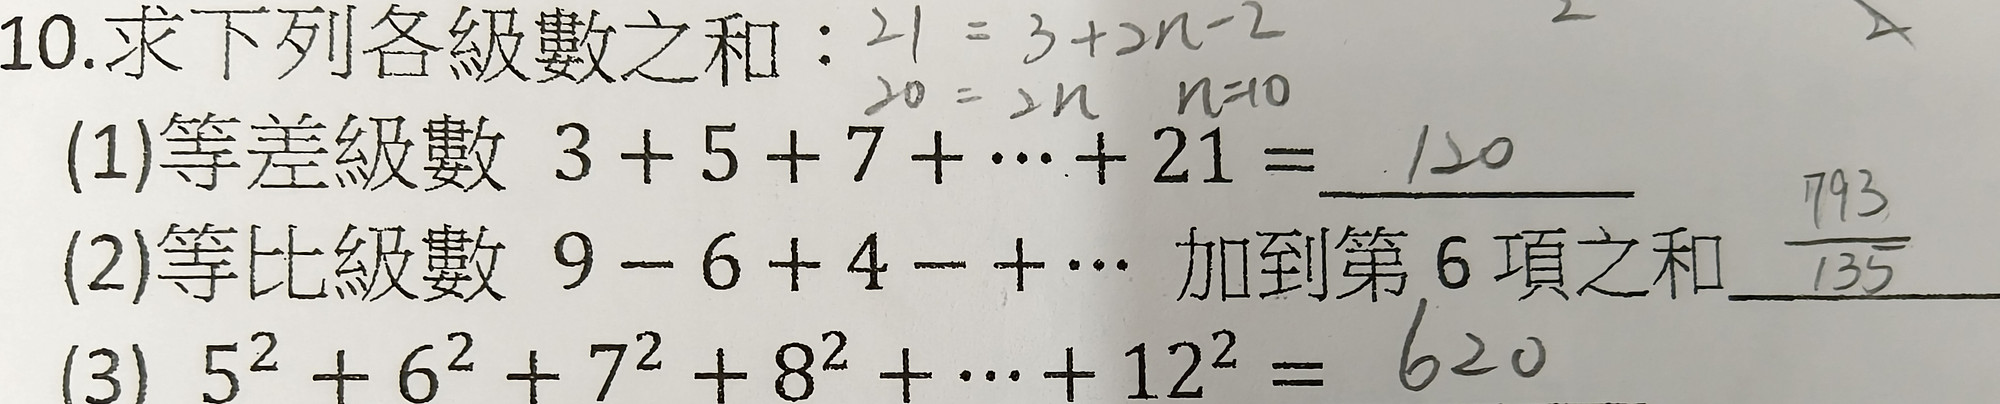 10.求下列各級數之和：21 = 3+2n-2
20 = 2n n=10
(1)等差級數 3 + 5 + 7 + ⋯ + 21 = 120
(2)等比級數 9 − 6 + 4 − + ⋯ 加到第 6 項之和 793/135
(3) 5² + 6² + 7² + 8² + ⋯ + 12² = 620